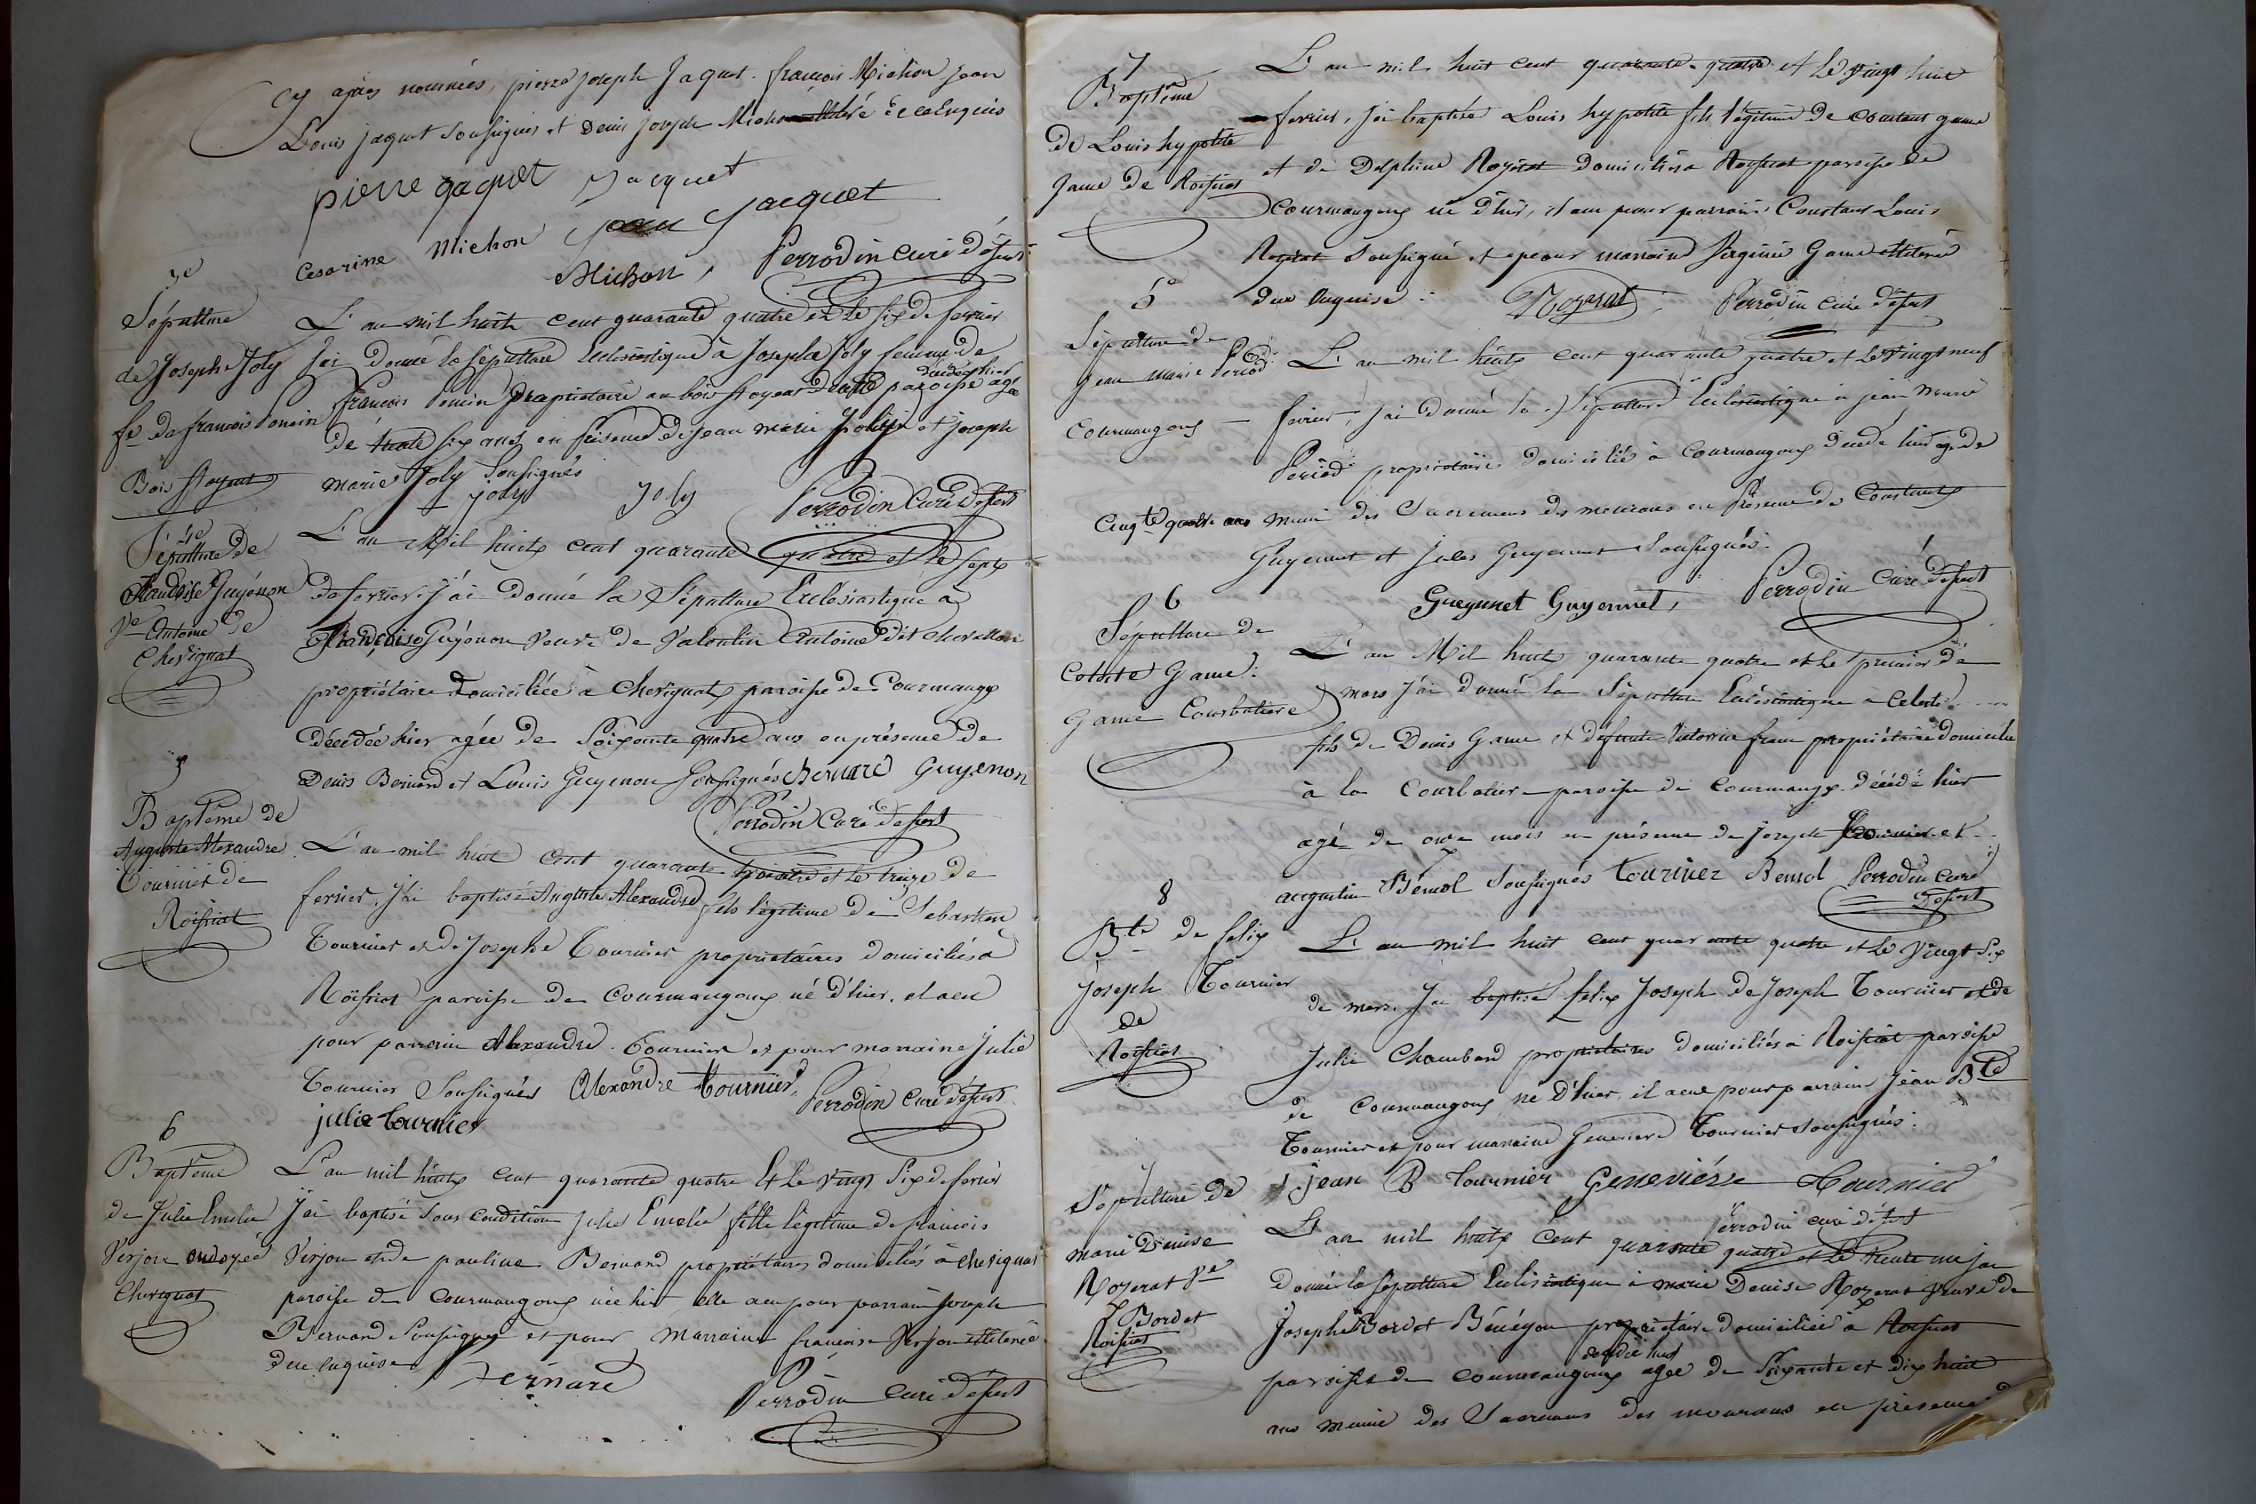 Cy après nommées, pierre joseph Jaquet. françois Michon jean
Louis jaquet Soussignés et Denis joseph Michon illitéré de ce enquis
pierre gaquet Jacquet
Cesarine Michon jean jacquet
Michon, Perrodin curé déssert
3e
Sépulture
de Josephe Joly
fe de françois Poncin
Bois Royent
L'an mil huit cent quarante quatre et le six de fevrier
j'ai donné la Sépulture Ecclésiastique à Josephe Joly femme de
françois Poncin propriétaire au bois Royent dudit paroisse agé
décédée hier
de trente six ans en présence de jean marie et joseph
marie Joly Soussignés
Joly Joly Perrodin Curé dessert
4e
Sépulture de
françoise Guyénon
Ve Antoine de
Chevignat
L'an Mil huit cent quarante quatre et le sept
de fevrier j'ai donné la Sépulture Ecclésiastique à
françoise Guyénon veuve de Valentin Antoine dit
propriétaire Domiciliée à Chevignat paroisse de Courmangx
décédée hier agée de Soixante quatre ans en présence de
Denis Bernard et Louis Guyenon Soussignés Bernard Guyenon
Perrodin Curé dessert
5
Baptême de
Auguste Alexandre
Tournier de
Roissiat
L'an mil huit cent quarante quatre et le treize de
fevrier. J'ai baptisé Auguste Alexandre fils légitime de Sebastien
Tournier et de Josephe Tournier propriétaires domiciliés à
Roissiat paroisse de Courmangoux né d'hier. il a eu
pour parrain Alexandre Tournier et pour marraine Julie
Tournier Soussignés Alexandre tournier, Perrodin curé déssert
julie tournier
6
Baptême
de Julie Emelie
Verjon ondoyée
Chevignat
L'an mil huit cent quarante quatre Et le vingt Six de fevrier
J'ai baptisé Sous condition Julie Emelie fille légitime de francois
Verjon et de pauline Bernard propriétaires domiciliés à Chevignat
paroisse de Courmangoux née hier elle a eu pour parrain Joseph
Bernard Soussigné et pour Marraine francoise Verjon illiterée
de ce enquise
Bernard
Perrodin Curé Dessert
7
Baptême
de Louis hypolite
Game de Roissiat
L'an mil huit cent quarante quatre et le vingt huit
fevrier, j'ai baptisé Louis hypolite fils légitime de Constant game
et de Delphine Royerat domiciliés à Roissiat paroisse de
Courmangoux né d'hier, il a eu pour parrain Constant Louis
Royerat Soussigné et pour marraine Virginie Game illiterée
de ce enquise. Royerat, Perrodin curé déssert
5e
Sépulture de
jean marie Périod
Courmangoux
L'an mil huit cent quarante quatre et le vingt neuf
fevrier, j'ai donné la Sépulture Ecclésiastique à jean Marie
Périod propriétaire domicilié à Courmangoux décédé hier agé de
Cinqte quatre ans muni des Sacremens des mourans en présence de Constant
Guyennet et Jules Guyennet Soussignés.
Gueynnet Guyennet, Perrodin curé dessert
6
Sépulture de
Celeste Game.
Game Courbatiere
L'an Mil huit quarante quatre et le premier de
mars j'ai donné la Sépulture Ecclésiastique à Celeste
fils de Denis Game et défunte Victorine franc propriétaire domicilié
à la Courbatiere paroisse de Courmangx. décédé hier
agé de onze mois en présence de joseph Tournier et
augustin Bémol Soussignés tournier Bemol Perrodin curé
dessert
8
Bte de felix
Joseph Tournier
de
Roissiat
L'an mil huit cent quarante quatre et le Vingt Six
de mars. J'ai baptisé felix Joseph de Joseph Tournier et de
Julie Chambard propriétaires domiciliés à Roissiat paroisse
de Courmangoux né d'hier, il a eu pour parrain Jean Bte
Tournier et pour marraine Genevieve Tournier Soussignés.
jean B tournier Geneviéve Tournier
Perrodin curé déssert
7
Sépulture de
marie Denise
Royerat Ve
J Bordet
Roissiat
L'an mil huit cent quarante quatre et le trente un jai
donné la Sépulture Ecclésiastique à marie Denise Royerat veuve de
Joseph Bordet Bénéyon propriétaire domiciliée à Roissiat
décédée hier
paroisse de Courmangoux agée de Soixante et dix huit
ans munie des Sacremens des mourans en présence